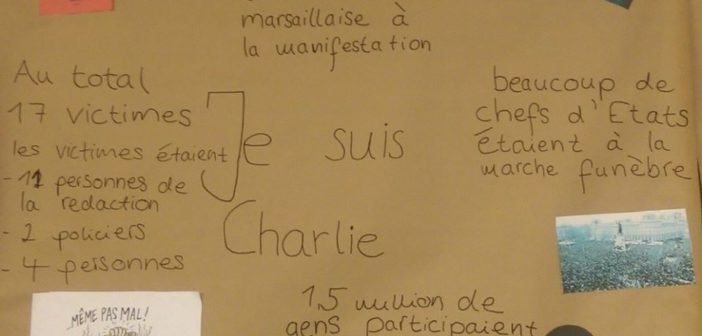 marsaillaise à
la manifestation
Au total
17 victimes
les victimes étaient
- 11 personnes de
la redaction
- 2 policiers
- 4 personnes
Je suis
Charlie
beaucoup de
chefs d'Etats
étaient à la
marche funèbre
MÊME PAS MAL!
1,5 million de
gens participaient